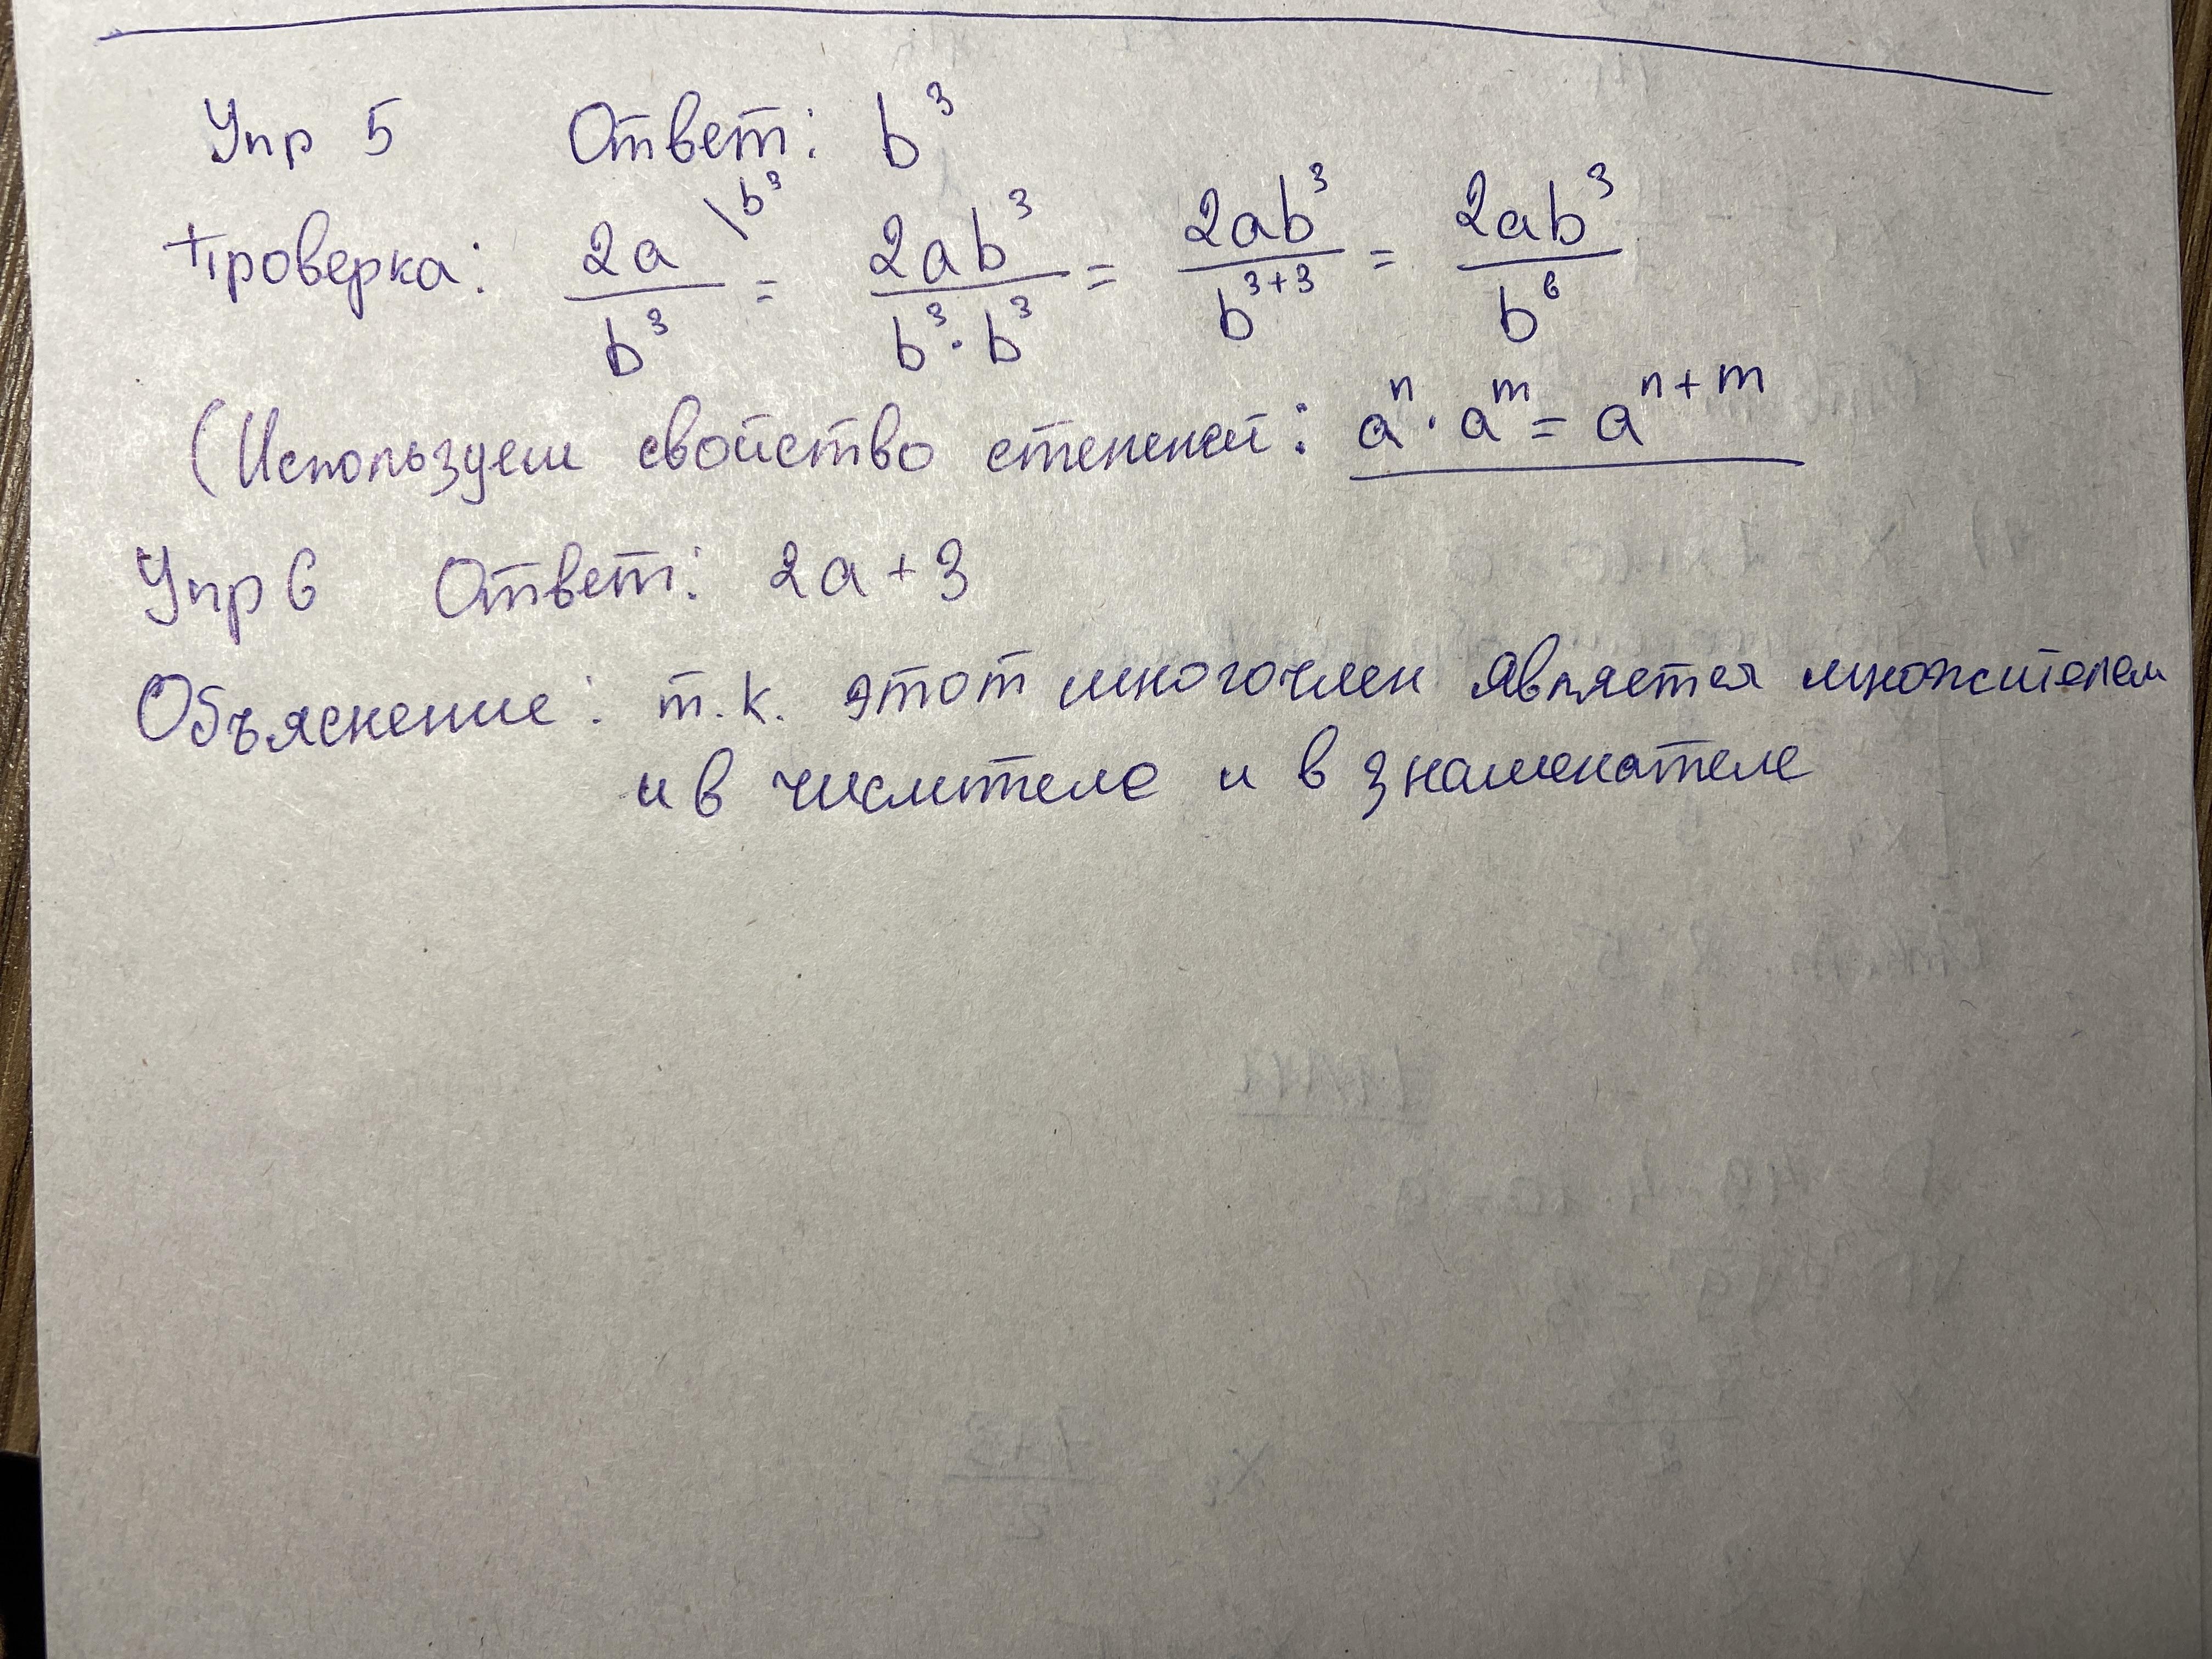 Упр 5 Ответ: b³
Проверка: 2a/b³ \b³ = 2ab³/(b³·b³) = 2ab³/b³⁺³ = 2ab³/b⁶
(Используем свойство степеней: aⁿ·aᵐ = aⁿ⁺ᵐ
Упр 6 Ответ: 2a+3
Объяснение: т.к. этот многочлен является множителем
и в числителе и в знаменателе